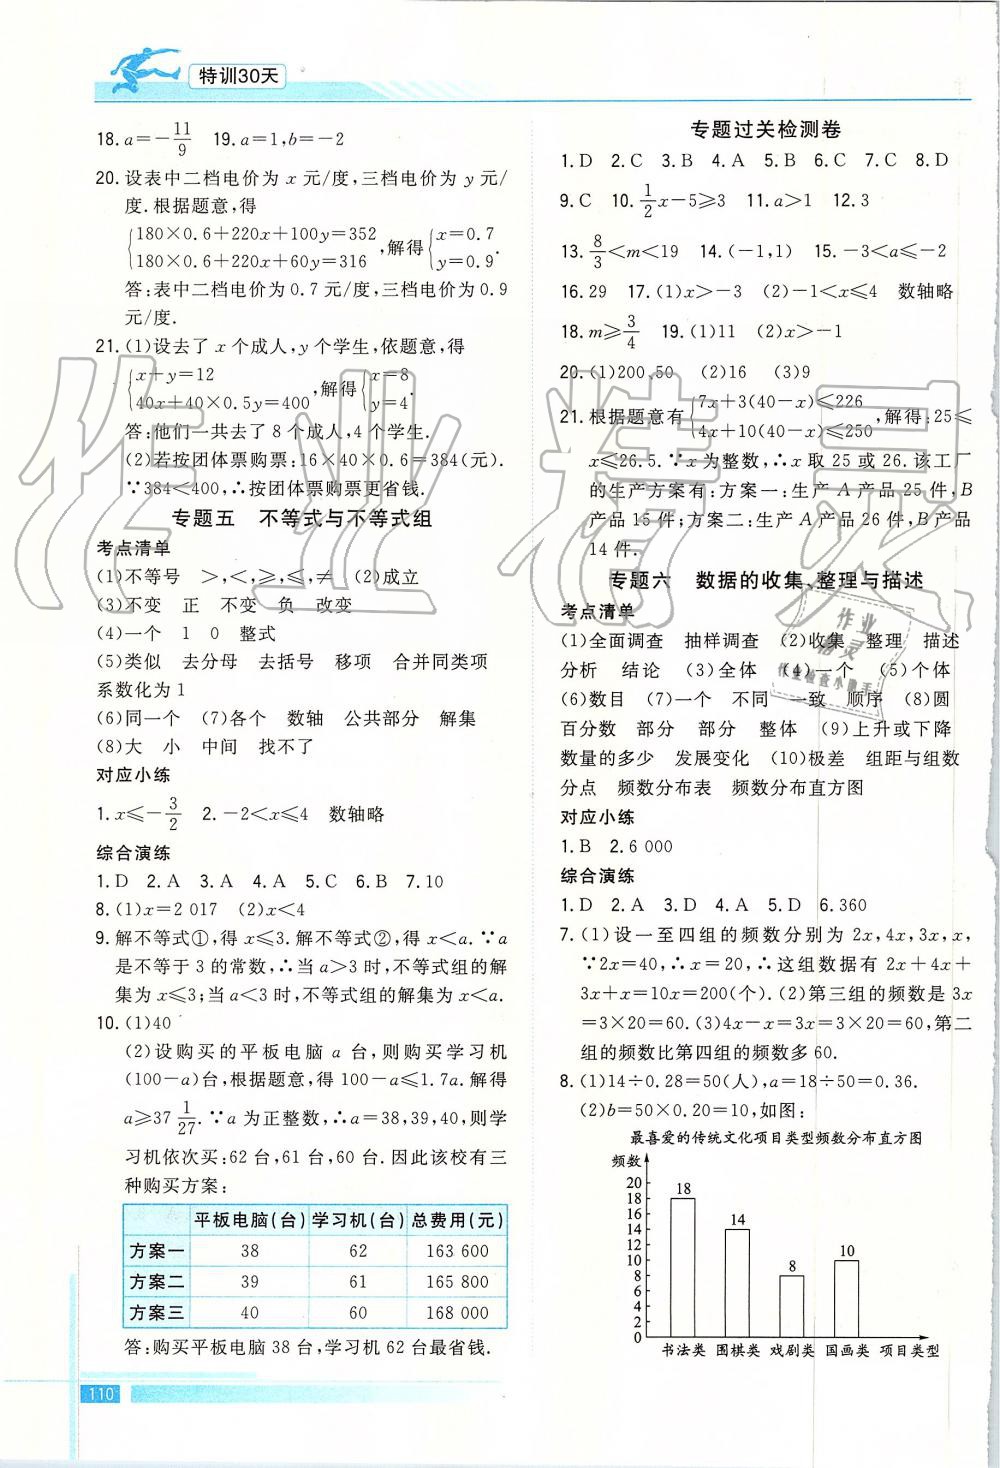 特训30天
18.a=-11/9 19.a=1,b=-2
20.设表中二档电价为 x 元/度,三档电价为 y 元/
度.根据题意,得
{180×0.6+220x+100y=352
180×0.6+220x+60y=316 ,解得{x=0.7
y=0.9 .
答:表中二档电价为0.7元/度,三档电价为0.9
元/度.
21.(1)设去了 x 个成人,y 个学生,依题意,得
{x+y=12
40x+40×0.5y=400 ,解得{x=8
y=4 .
答:他们一共去了8个成人,4个学生.
(2)若按团体票购票:16×40×0.6=384(元).
∵384<400,∴按团体票购票更省钱.
专题五 不等式与不等式组
考点清单
(1)不等号 >,<,≥,≤,≠ (2)成立
(3)不变 正 不变 负 改变
(4)一个 1 0 整式
(5)类似 去分母 去括号 移项 合并同类项
系数化为1
(6)同一个 (7)各个 数轴 公共部分 解集
(8)大 小 中间 找不了
对应小练
1.x≤-3/2 2.-2<x≤4 数轴略
综合演练
1.D 2.A 3.A 4.A 5.C 6.B 7.10
8.(1)x=2 017 (2)x<4
9.解不等式①,得 x≤3.解不等式②,得 x<a.∵a
是不等于3的常数,∴当 a>3时,不等式组的解
集为 x≤3;当 a<3时,不等式组的解集为 x<a.
10.(1)40
(2)设购买的平板电脑 a 台,则购买学习机
(100-a)台,根据题意,得100-a≤1.7a.解得
a≥37 1/27.∵a 为正整数,∴a=38,39,40,则学
习机依次买:62台,61台,60台.因此该校有三
种购买方案:
平板电脑(台) 学习机(台) 总费用(元)
方案一 38 62 163 600
方案二 39 61 165 800
方案三 40 60 168 000
答:购买平板电脑38台,学习机62台最省钱.
110
专题过关检测卷
1.D 2.C 3.B 4.A 5.B 6.C 7.C 8.D
9.C 10.1/2x-5≥3 11.a>1 12.3
13.8/3<m<19 14.(-1,1) 15.-3<a≤-2
16.29 17.(1)x>-3 (2)-1<x≤4 数轴略
18.m≥3/4 19.(1)11 (2)x>-1
20.(1)200,50 (2)16 (3)9
21.根据题意有{7x+3(40-x)≤226
4x+10(40-x)≤250 ,解得:25≤
x≤26.5.∵x 为整数,∴x 取25或26.该工厂
的生产方案有:方案一:生产 A 产品25件,B
产品15件;方案二:生产 A 产品26件,B 产品
14件.
专题六 数据的收集、整理与描述
考点清单
(1)全面调查 抽样调查 (2)收集 整理 描述
分析 结论 (3)全体 (4)一个 (5)个体
(6)数目 (7)一个 不同 一致 顺序 (8)圆
百分数 部分 部分 整体 (9)上升或下降
数量的多少 发展变化 (10)极差 组距与组数
分点 频数分布表 频数分布直方图
对应小练
1.B 2.6 000
综合演练
1.D 2.A 3.D 4.A 5.D 6.360
7.(1)设一至四组的频数分别为 2x,4x,3x,x,
∵2x=40,∴x=20,∴这组数据有 2x+4x+
3x+x=10x=200(个).(2)第三组的频数是 3x
=3×20=60.(3)4x-x=3x=3×20=60,第二
组的频数比第四组的频数多60.
8.(1)14÷0.28=50(人),a=18÷50=0.36.
(2)b=50×0.20=10,如图:
最喜爱的传统文化项目类型频数分布直方图
频数
20
18
16
14
12
10
8
6
4
2
0
18
14
8
10
书法类 围棋类 戏剧类 国画类 项目类型
作业精灵
作业
精灵
作业检查小助手